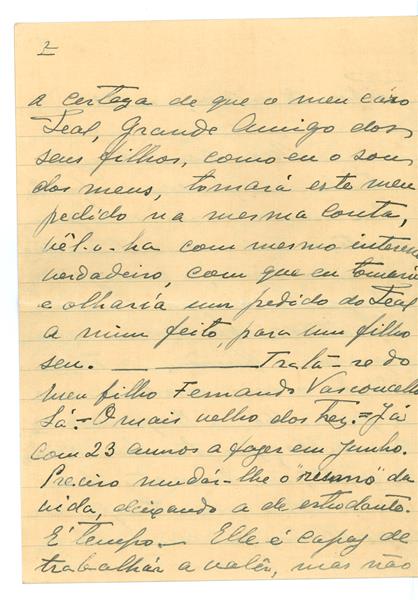 2
a certeza de que o meu cáro
Leal, Grande Amigo dos
seus filhos, como eu o sou
dos meus, tomará este meu
pedido na mesma conta,
vêl-o-ha com mesmo interesse
verdadeiro, com que eu tomaria
e olharia um pedido do Leal
a mim feito, para um filho
seu. ———— Tratà-se do
meu filho Fernando Vasconcellos
Sá.= O mais velho dos Trez.= Já
com 23 annos a fazer em Junho.
Preciso mudár-lhe o "rumo" da
vida, deixando a de estudante.
É tempo.— Elle é capaz de
trabalhár a valêr, mas não